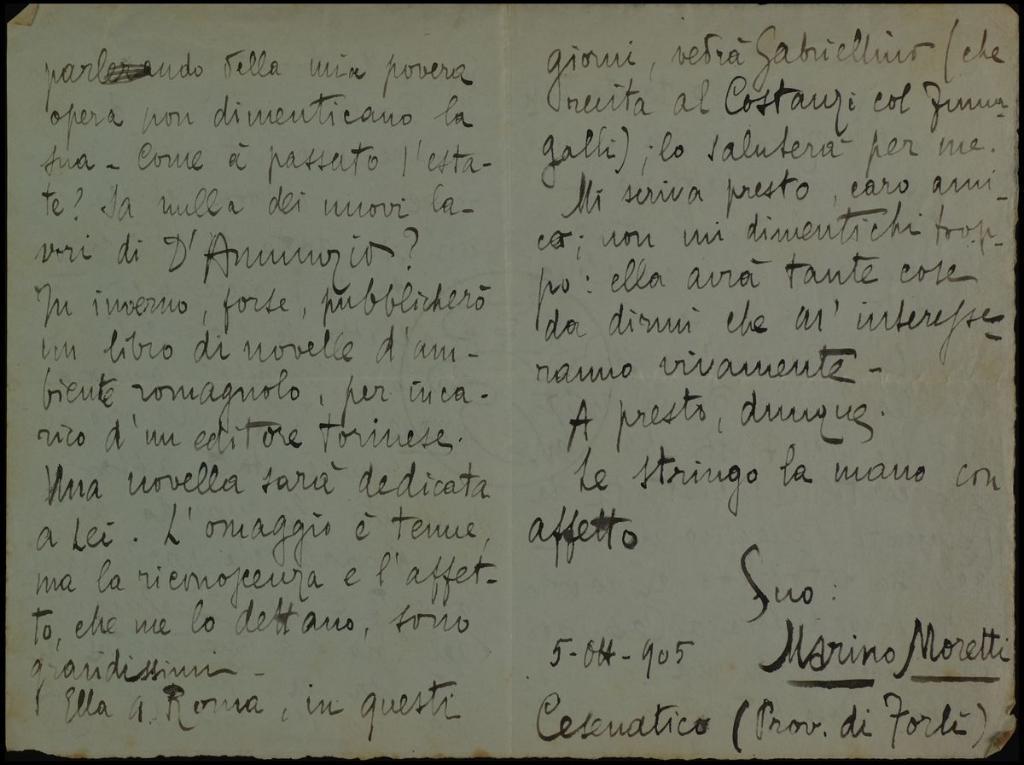 parlando della mia povera
opera non dimenticano la
sua - Come à passato l'esta-
te? Sa nulla dei nuovi la-
vori di D'Annunzio?
In inverno, forse, pubblicherò
un libro di novelle d'am-
biente romagnolo, per inca-
rico d'un editore torinese.
Una novella sarà dedicata
a Lei. L'omaggio è tenue,
ma la riconoscenza e l'affet-
to, che me lo dettano, sono
grandissimi -
Ella a Roma, in questi
giorni, vedrà Gabriellino (che
recita al Costanzi col Fuma-
galli); lo saluterà per me.
Mi scriva presto, caro ami-
co; non mi dimentichi trop-
po: ella avrà tante cose
da dirmi che m'interesse-
ranno vivamente -
A presto, dunque.
Le stringo la mano con
affetto
Suo:
Marino Moretti
5-Ott-905
Cesenatico (Prov. di Forlì)